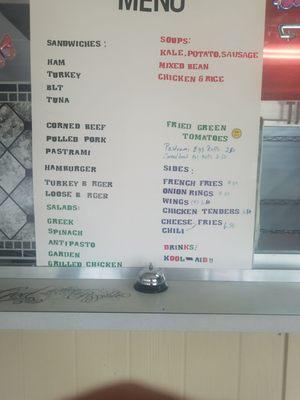 MENU
SANDWICHES:
HAM
TURKEY
BLT
TUNA
CORNED BEEF
PULLED PORK
PASTRAMI
HAMBURGER
TURKEY B RGER
LOOSE B RGER
SALADS:
GREEK
SPINACH
ANTIPASTO
GARDEN
GRILLED CHICKEN
SOUPS:
KALE, POTATO, SAUSAGE
MIXED BEAN
CHICKEN & RICE
FRIED GREEN
TOMATOES
Pastrami Egg Rolls
SIDES:
FRENCH FRIES
ONION RINGS
WINGS
CHICKEN TENDERS
CHEESE FRIES
CHILI
DRINKS:
KOOL-AID!!